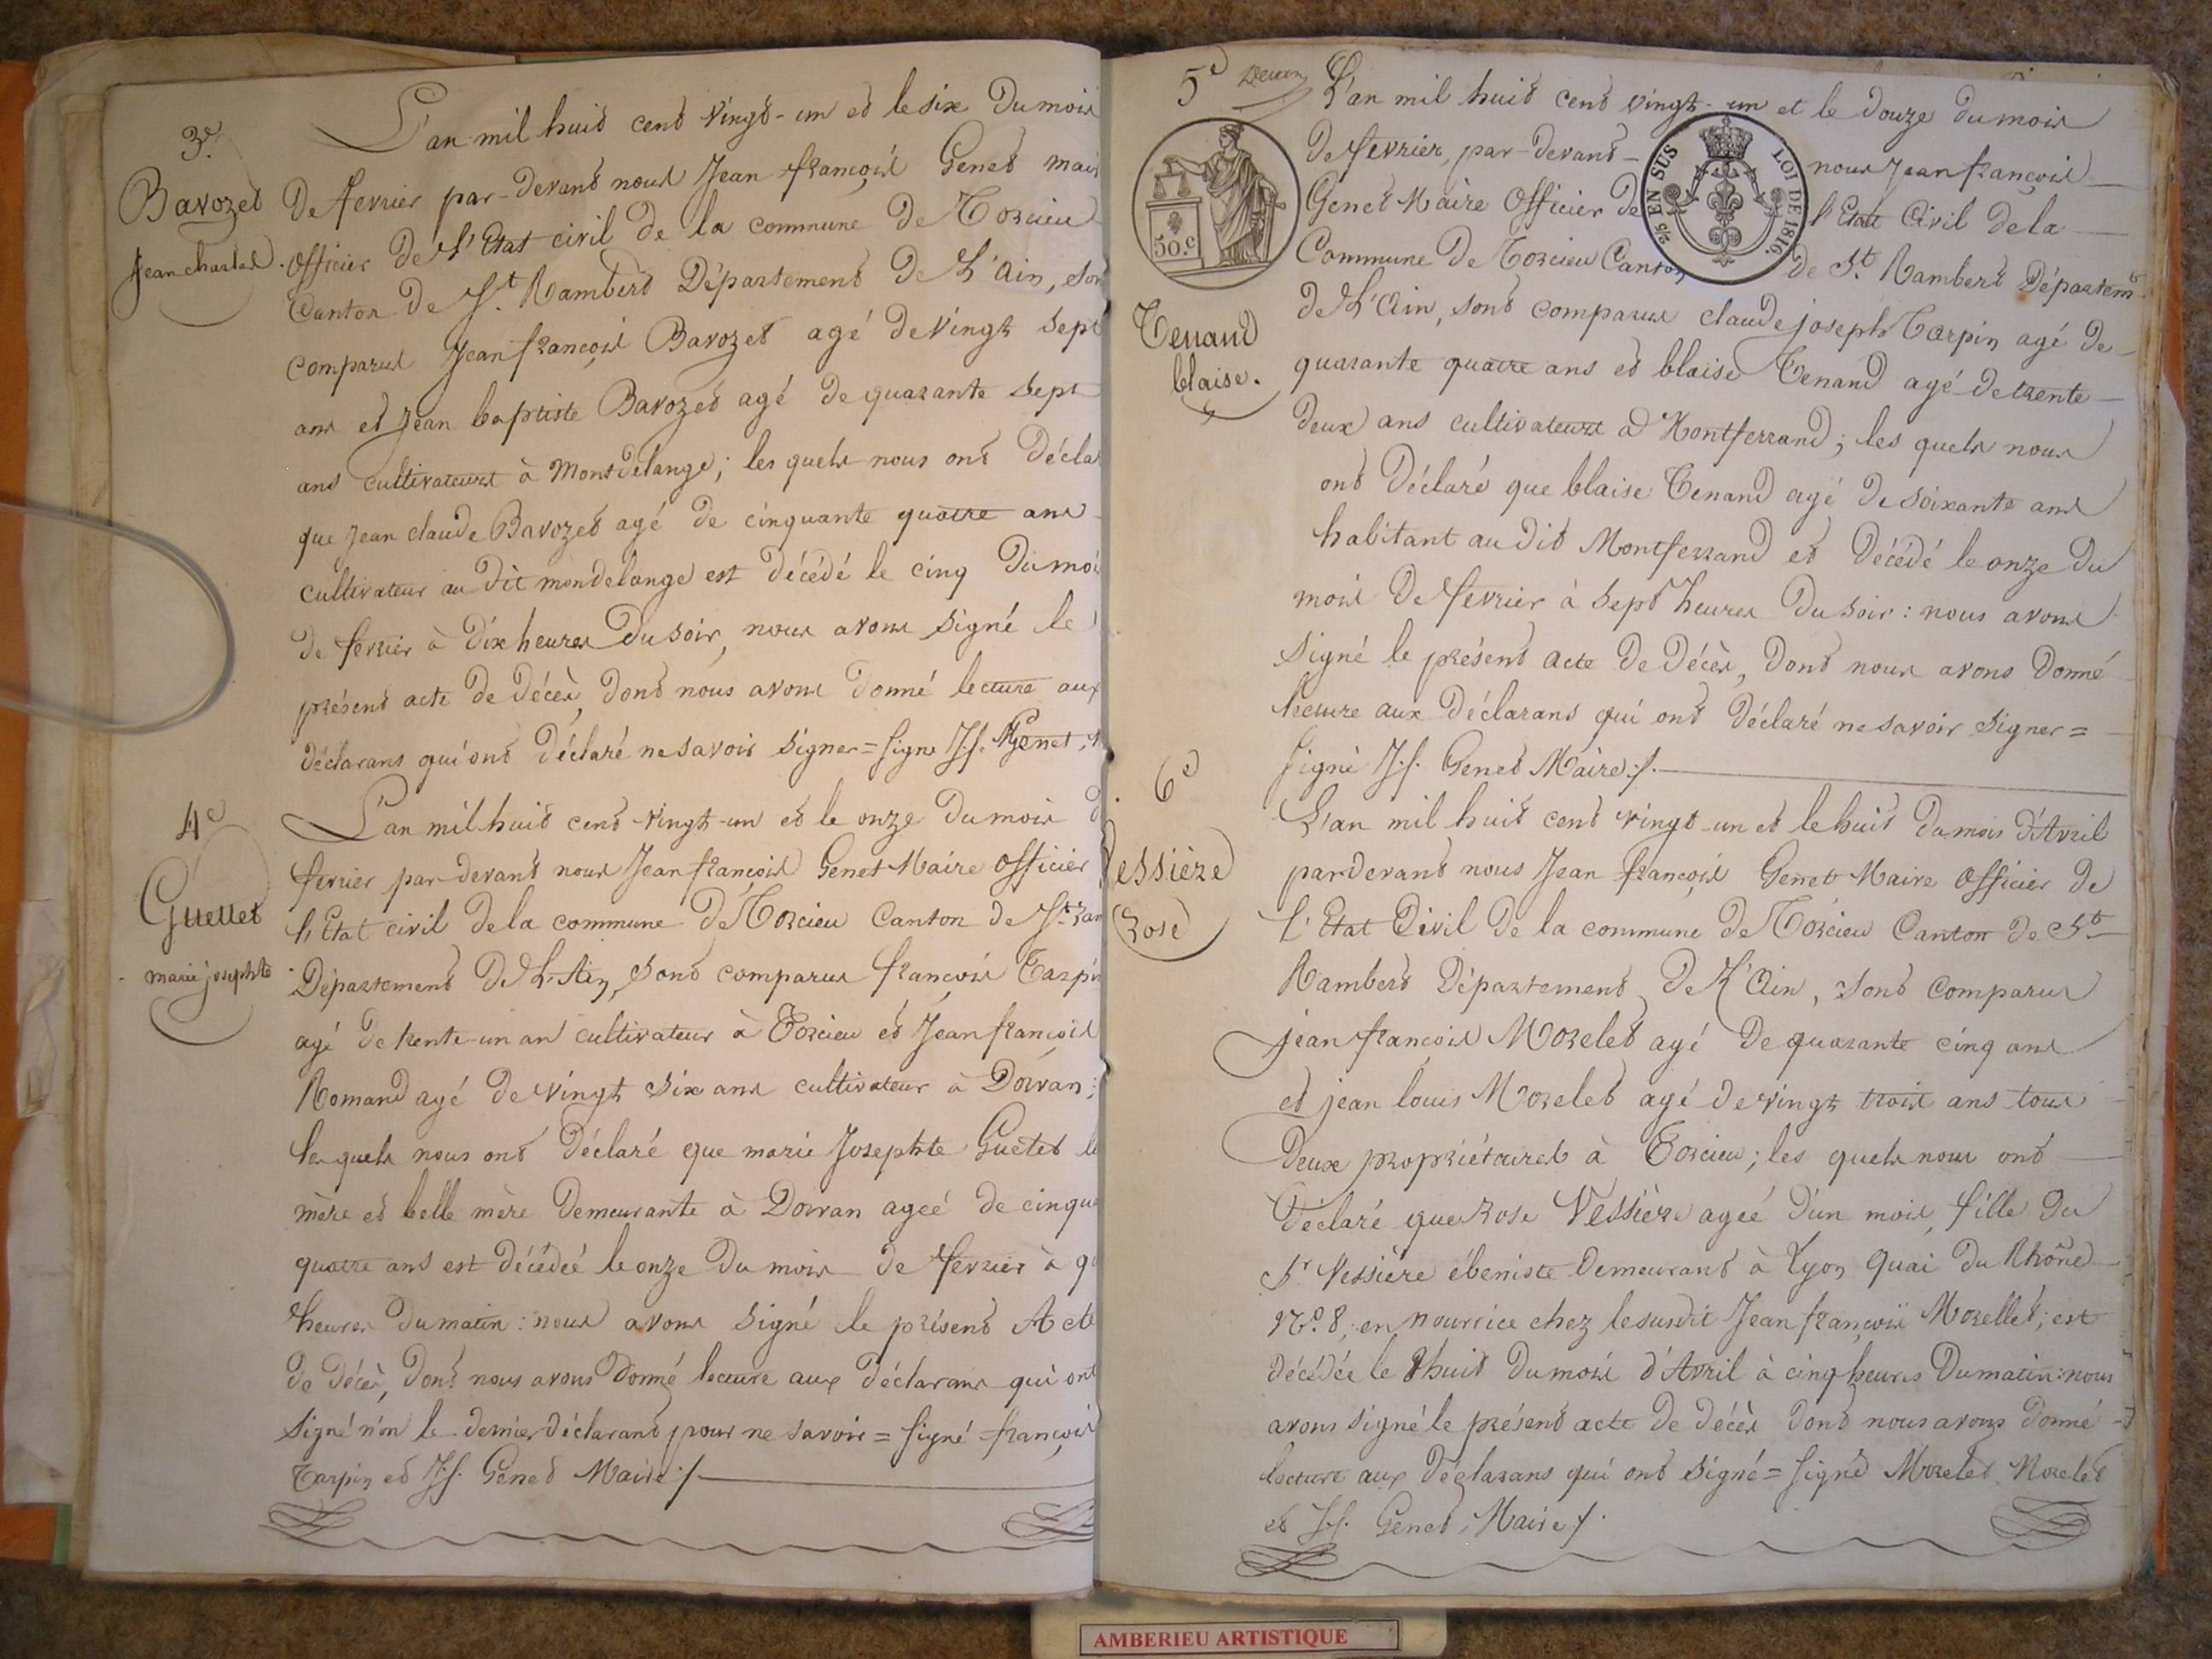 3e.
Bavozet
Jean charles.
L'an mil huit cent vingt-un et le six du mois
de fevrier par-devant nous Jean françois Genet mair
officier de l'Etat civil de la commune de Torcieu
Canton de St. Rambert Département de L'Ain, son
comparus Jean françois Bavozet agé de vingt sept
ans et Jean baptiste Bavozet agé de quarante sept
ans cultivateurs à Montdelange; les quels nous ont décla
que Jean claude Bavozet agé de cinquante quatre ans
cultivateur au dit mondelange est décédé le cinq du moi
de fevrier à dix heures du soir, nous avons signé le
présent acte de décès, dont nous avons donné lecture aux
déclarans qui ont déclaré ne savoir signer = signé J.f. Genet,
4e
Guettet
marie josephte
L'an mil huit cent-vingt-un et le onze du mois d
fevrier par-devant nous Jean françois Genet Maire officier
l'Etat civil de la commune de Torcieu Canton de St. Ram
Département de L'Ain, sont comparus françois Tarpin
agé de trente-un an cultivateur à Torcieu et Jean françois
Romand agé de vingt six ans cultivateur à Dorvan;
les quels nous ont déclaré que marie Josephte Guetet le
mère et belle mère demeurante à Dorvan ageé de cinqua
quatre ans est décédeé le onze du mois de fevrier à qu
heures du matin: nous avons signé le présent Acte
de décès, dont nous avons donné lecture aux déclarans qui ont
signé n'on le dernier déclarant pour ne savoir = signé françois
Tarpin et J.f. Genet Maire ./.
5e
L'an mil huit cent vingt-un et le douze du mois
de fevrier, par-devant - nous Jean françois
Genet Maire Officier de l'Etat Civil de la
Commune de Torcieu Canton de St. Rambert Départemt
50.c
2/5 EN SUS
LOI DE 1816
Tenand
blaise.
de L'Ain, sont comparus claude joseph Tarpin agé de
quarante quatre ans et blaise Tenand agé de trente
deux ans cultivateurs à Montferrand; les quels nous
ont déclaré que blaise Tenand agé de soixante ans
habitant au dit Montferrand et décédé le onze du
mois de fevrier à sept heures du soir: nous avons
signé le présent acte de décès, dont nous avons donné
lecture aux déclarans qui ont déclaré ne savoir signer =
signé J.f. Genet Maire ./.
6e
Vessière
Rose
L'an mil huit cent vingt-un et le huit du mois d'Avril
pardevant nous Jean françois Genet Maire Officier de
l'Etat Civil de la commune de Torcieu Canton de St
Rambert Département de L'Ain, sont comparus
jean françois Morelet agé de quarante cinq ans
et jean louis Morelet agé de vingt trois ans tous
deux propriétaires à Torcieu; les quels nous ont
déclaré que Rose Vessière ageé d'un mois, fille du
Sr Vessière ébeniste demeurant à Lyon quai du Rhône
No. 8, en nourrice chez le susdit Jean françois Morellet; est
décédée le huit du mois d'Avril à cinq heures du matin: nous
avons signé le présent acte de décès dont nous avons donné
lecture aux déclarans qui ont signé = signé Morelet Morelet
et J.f. Genet, Maire ./.
AMBERIEU ARTISTIQUE